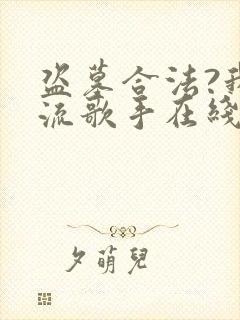 盗墓合法?我
流歌手在綫
夕萌兒